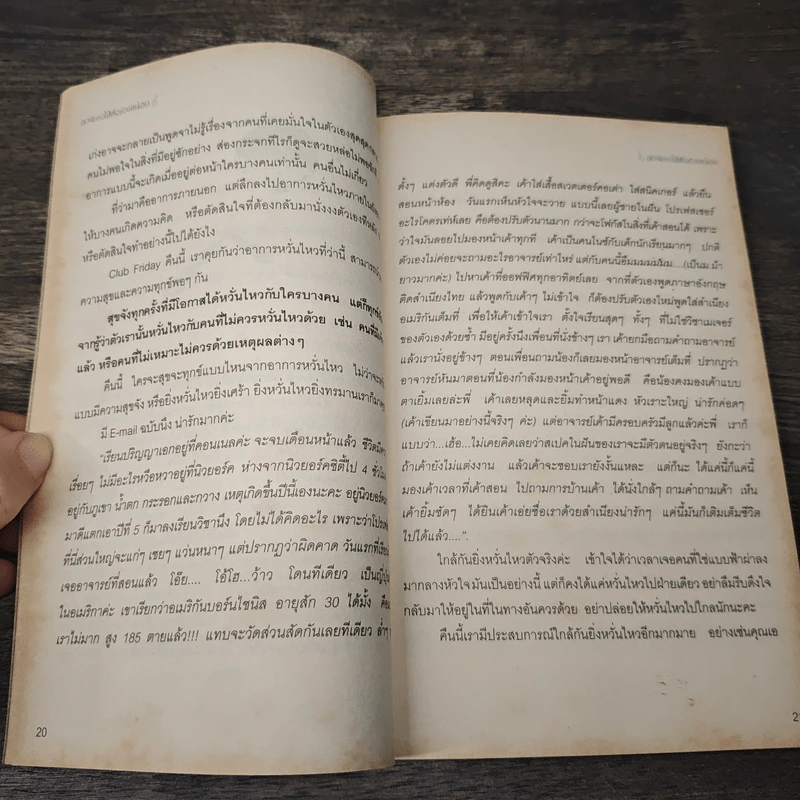 เก่งอาจจะกลายเป็นพูดจาไม่รู้เรื่องจากคนที่เคยมั่นใจในตัวเองสุดสุดกลาย
คนไม่พอใจในสิ่งที่มีอยู่ซักอย่าง ส่องกระจกทีไรก็ดูจะสวยหล่อไม่พอซักที
อาการแบบนี้จะเกิดเมื่ออยู่ต่อหน้าใครบางคนเท่านั้น คนอื่นไม่เกี่ยว
ที่ว่ามาคืออาการภายนอก แต่ลึกลงไปอาการหวั่นไหวภายในมัน
ให้บางคนเกิดความคิด หรือตัดสินใจที่ต้องกลับมานั่งงงตัวเองทีหลังว่า
หรือตัดสินใจทำอย่างนี้ไปได้ยังไง
Club Friday คืนนี้ เราคุยกันว่าอาการหวั่นไหวที่ว่านี้ สามารถ
ความสุขและความทุกข์พอๆ กัน
สุขจังทุกครั้งที่มีโอกาสได้หวั่นไหวกับใครบางคน แต่ก็ทุกข์
จากรู้ว่าตัวเรานั้นหวั่นไหวกับคนที่ไม่ควรหวั่นไหวด้วย เช่น คนที่มี
แล้ว หรือคนที่ไม่เหมาะไม่ควรด้วยเหตุผลต่างๆ
คืนนี้ ใครจะสุขจะทุกข์แบบไหนจากอาการหวั่นไหว ไม่ว่าจะ
แบบมีความสุขจัง หรือยิ่งหวั่นไหวยิ่งเศร้า ยิ่งหวั่นไหวยิ่งทรมานเราก็
มี E-mail ฉบับนึง น่ารักมากค่ะ
"เรียนปริญญาเอกอยู่ที่คอนเนลค่ะ จะจบเดือนหน้าแล้ว ชีวิต
เรื่อยๆ ไม่มีอะไรหวือหวาอยู่ที่นิวยอร์ค ห่างจากนิวยอร์คซิตี้ไป 4 ชั่วโมง
อยู่กับภูเขา น้ำตก กระรอกและกวาง เหตุเกิดขึ้นปีนี้เองนะคะ อยู่นิวยอร์ค
มาดีแตกเอาปีที่ 5 ก็มาลงเรียนวิชานึง โดยไม่ได้คิดอะไร เพราะว่าโปรเฟสเซอร์
ที่นี่ส่วนใหญ่จะแก่ๆ เชยๆ แว่นหนาๆ แต่ปรากฏว่าผิดคาด วันแรกที่เรียน
เจออาจารย์ที่สอนแล้ว โอ๊ย.... โอ้โฮ...ว้าว โดนทีเดียว เป็นญี่ปุ่น
ในอเมริกาค่ะ เขาเรียกว่าอเมริกันบอร์นไชนิส อายุสัก 30 ได้มั้ง คือ
เราไม่มาก สูง 185 ตายแล้ว!!! แทบจะวัดส่วนสัดกันเลยทีเดียว ล่ำๆ
20
ตั้งๆ แต่งตัวดี พี่คิดดูสิคะ เค้าใส่เสื้อสเวตเตอร์คอเต่า ใส่สนิคเกอร์ แล้วยืน
สอนหน้าห้อง วันแรกเห็นหัวใจจะวาย แบบนี้เลยผู้ชายในฝัน โปรเฟสเซอร์
อะไรโคตรเท่ห์เลย คือต้องปรับตัวนานมาก กว่าจะโฟกัสในสิ่งที่เค้าสอนได้ เพราะ
ว่าใจมันลอยไปมองหน้าเค้าทุกที เค้าเป็นคนไนซ์กับเด็กนักเรียนมากๆ ปกติ
ตัวเองไม่ค่อยจะถามอะไรอาจารย์เท่าไหร่ แต่กับคนนี้อืมมมมม่มม....(เป็นม.ม้า
ยาวมากค่ะ) ไปหาเค้าที่ออฟฟิศทุกอาทิตย์เลย จากที่ตัวเองพูดภาษาอังกฤษ
ติดสำเนียงไทย แล้วพูดกับเค้าๆ ไม่เข้าใจ ก็ต้องปรับตัวเองใหม่พูดใส่สำเนียง
อเมริกันเต็มที่ เพื่อให้เค้าเข้าใจเรา ตั้งใจเรียนสุดๆ ทั้งๆ ที่ไม่ใช่วิชาเมเจอร์
ของตัวเองด้วยซ้ำ มีอยู่ครั้งนึงเพื่อนที่นั่งข้างๆ เรา เค้ายกมือถามคำถามอาจารย์
แล้วเรานั่งอยู่ข้างๆ ตอนเพื่อนถามน้องก็เลยมองหน้าอาจารย์เต็มที่ ปรากฏว่า
อาจารย์หันมาตอนที่น้องกำลังมองหน้าเค้าอยู่พอดี คือน้องคงมองเค้าแบบ
ตาเยิ้มเลยล่ะพี่ เค้าเลยหลุดและยิ้มทำหน้าแดง หัวเราะใหญ่ น่ารักค่อดๆ
(เค้าเขียนมาอย่างนี้จริงๆ ค่ะ) แต่อาจารย์เค้ามีครอบครัวมีลูกแล้วค่ะพี่ เราก็
แบบว่า...เฮ้อ...ไม่เคยคิดเลยว่าสเปคในฝันของเราจะมีตัวตนอยู่จริงๆ ยังกะว่า
ถ้าเค้ายังไม่แต่งงาน แล้วเค้าจะชอบเรายังงั้นแหละ แต่ก็นะ ได้แค่นี้ก็แค่นี้
มองเค้าเวลาที่เค้าสอน ไปถามการบ้านเค้า ได้นั่งใกล้ๆ ถามคำถามเค้า เห็น
เค้ายิ้มชัดๆ ได้ยินเค้าเอ่ยชื่อเราด้วยสำเนียงน่ารักๆ แค่นี้มันก็เติมเต็มชีวิต
ไปได้แล้ว....".
ใกล้กันยิ่งหวั่นไหวตัวจริงค่ะ เข้าใจได้ว่าเวลาเจอคนที่ใช่แบบฟ้าผ่าลง
มากลางหัวใจ มันเป็นอย่างนี้ แต่ก็คงได้แค่หวั่นไหวไปฝ่ายเดียว อย่าลืมรีบดึงใจ
กลับมาให้อยู่ในที่ในทางอันควรด้วย อย่าปล่อยให้หวั่นไหวไปไกลนักนะคะ
คืนนี้เรามีประสบการณ์ใกล้กันยิ่งหวั่นไหวอีกมากมาย อย่างเช่นคุณเอ